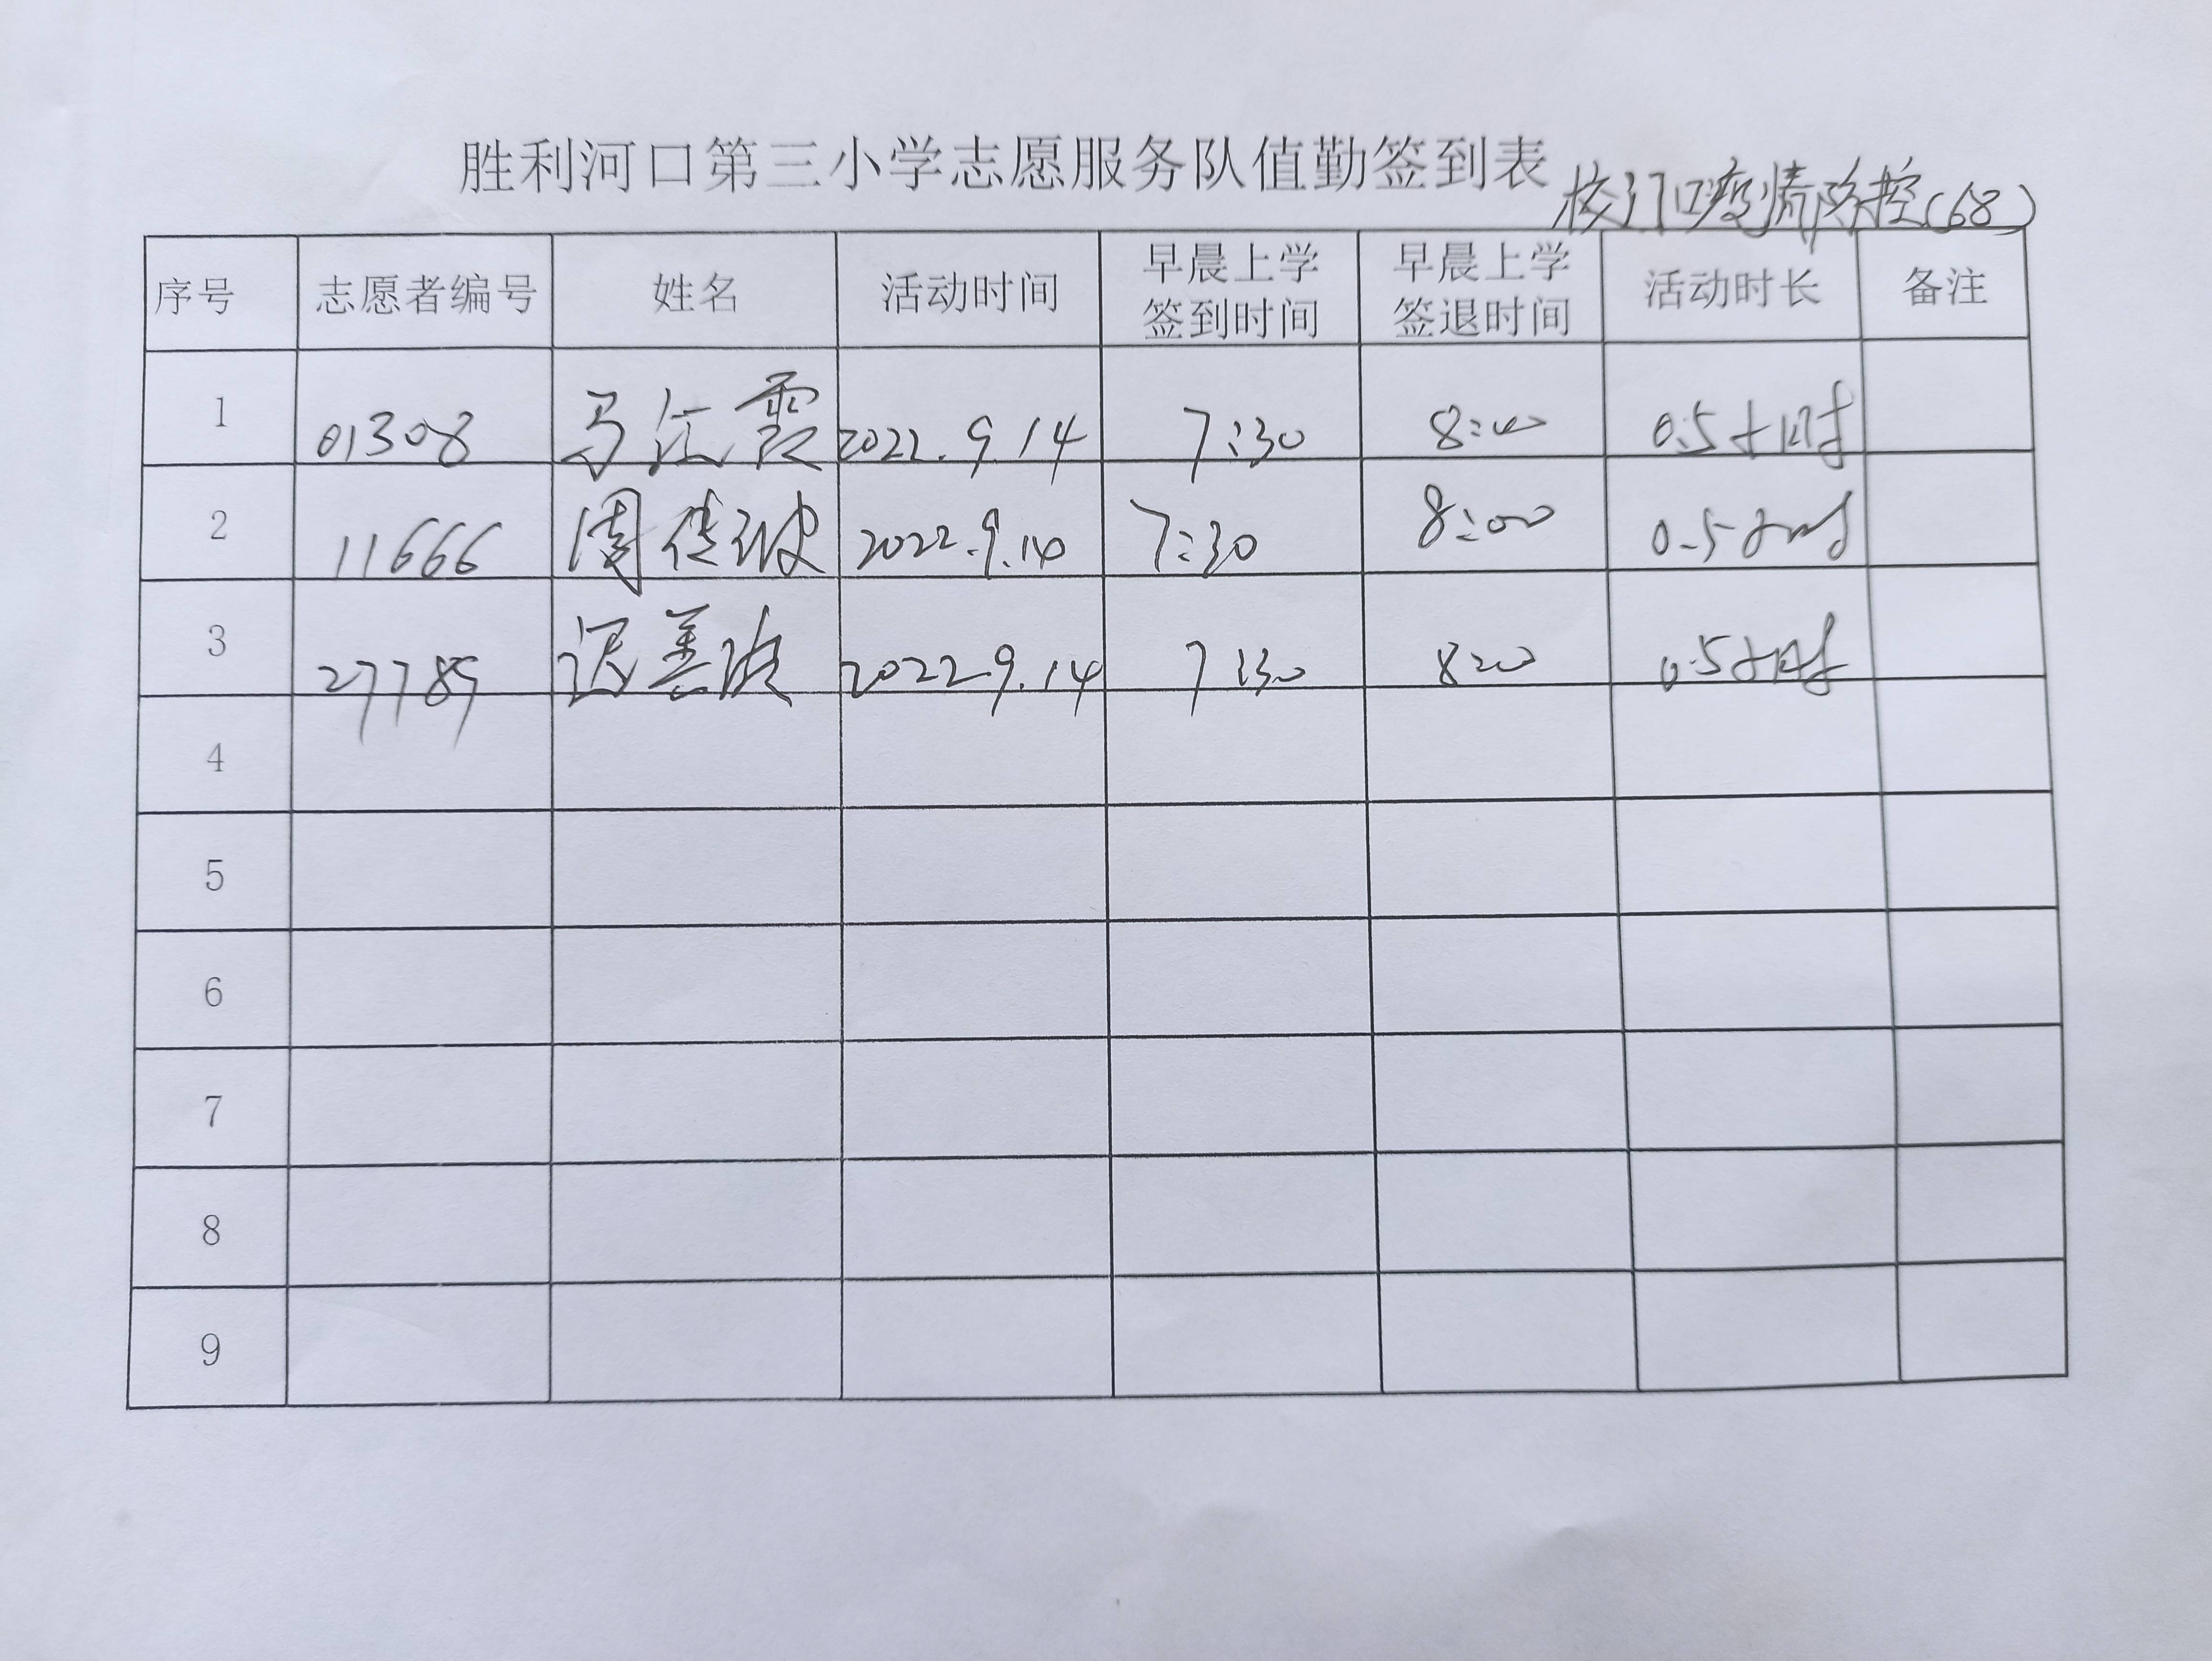 胜利河口第三小学志愿服务队值勤签到表
校门口疫情防控(68)
序号 志愿者编号 姓名 活动时间 早晨上学签到时间 早晨上学签退时间 活动时长 备注
1 01308 马红霞 2022.9.14 7:30 8:00 0.5小时
2 11666 周传波 2022.9.14 7:30 8:00 0.5小时
3 27789 迟善波 2022.9.14 7:30 8:00 0.5小时
4
5
6
7
8
9